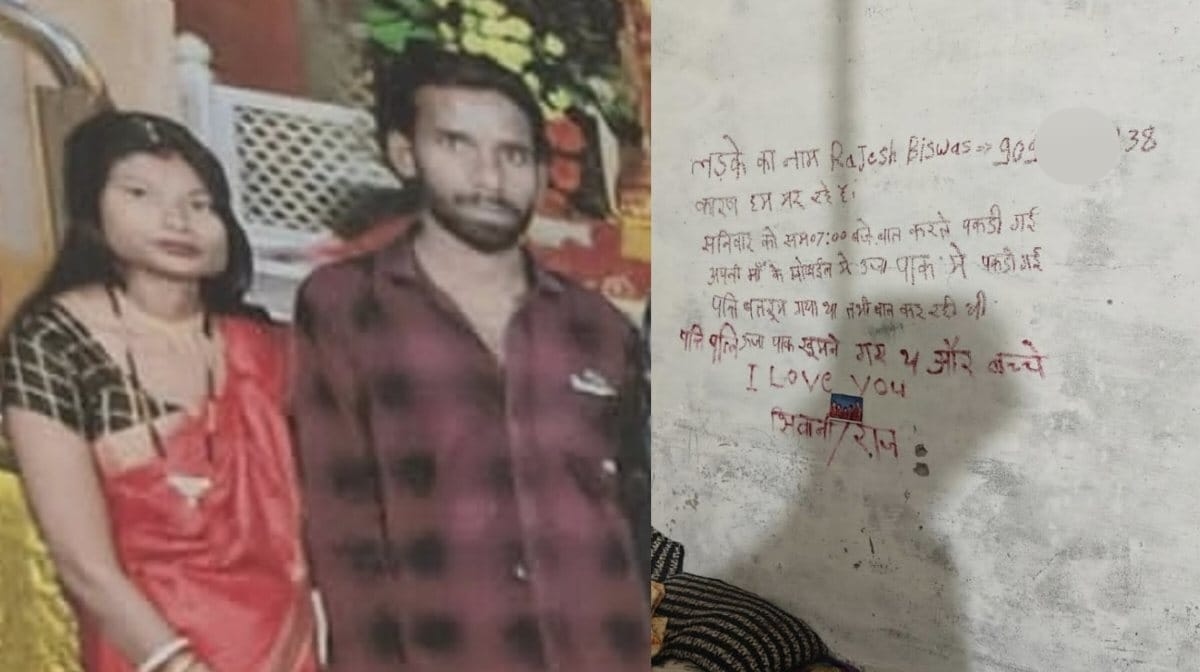 लड़के का नाम Rajesh Biswas => 909 38
कारण हम मर रहे हैं।
सनिवार को सम07:00 बजे बात करते पकडी गई
अपनी माँ के मोबाईल से उर्जा पार्क में पकडी गई
पत्ति बातरूम गया था तभी बात कर रही थी
पत्ति पत्नि उर्जा पार्क घुमने गए थे और बच्चे
I Love You
शिवानी/राज